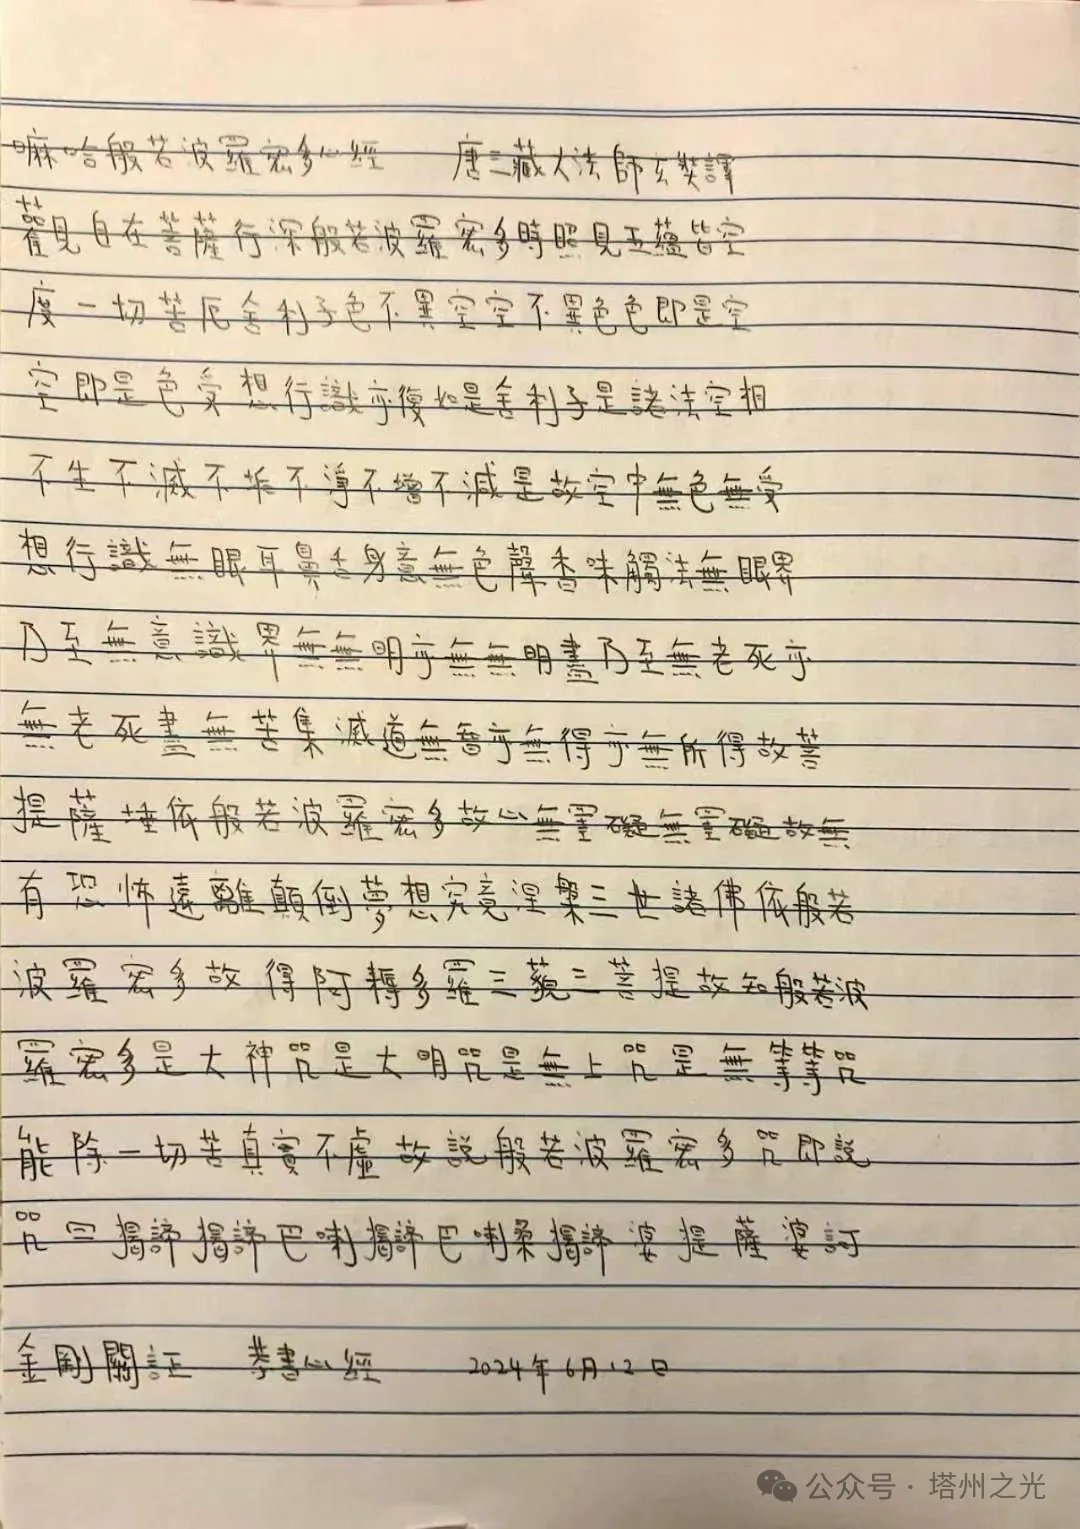 嘛哈般若波羅密多心經 唐三藏大法師玄奘譯
觀自在菩薩行深般若波羅密多時照見五蘊皆空
度一切苦厄舍利子色不異空空不異色色即是空
空即是色受想行識亦復如是舍利子是諸法空相
不生不滅不垢不淨不增不減是故空中無色無受
想行識無眼耳鼻舌身意無色聲香味觸法無眼界
乃至無意識界無無明亦無無明盡乃至無老死亦
無老死盡無苦集滅道無智亦無得亦無所得故菩
提薩埵依般若波羅密多故心無罣礙無罣礙故無
有恐怖遠離顛倒夢想究竟涅槃三世諸佛依般若
波羅密多故得阿耨多羅三藐三菩提故知般若波
羅密多是大神咒是大明咒是無上咒是無等等咒
能除一切苦真實不虛故說般若波羅密多咒即說
咒曰揭諦揭諦巴喇揭諦巴喇柔揭諦婆提薩婆訶
金剛關証 恭書心經 2024年6月12日
公众号·塔州之光